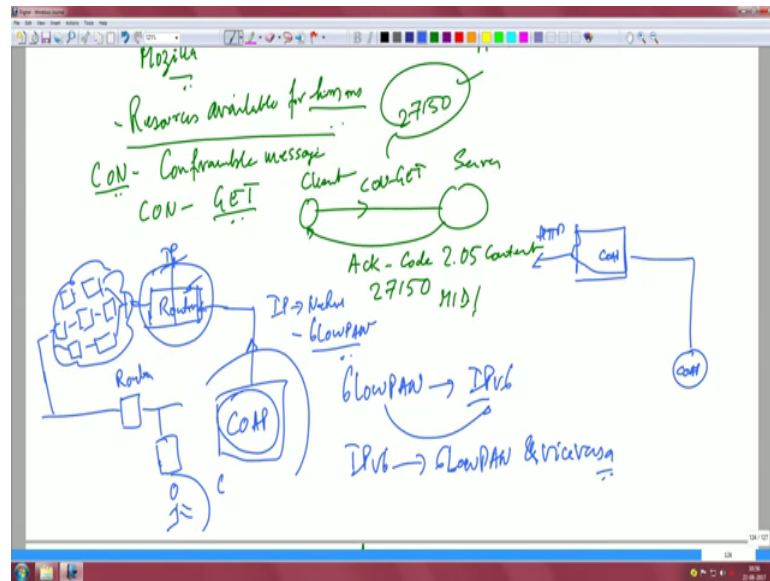 Digital - Windows Journal
File Edit View Insert Actions Tools Help
Mozilla
- Resources available for humans
27150
CON - Confirmable message
CON - GET
Client CON-GET Server
Ack - Code 2.05 Content
27150 MID/
HTTP COAP
COAP
IP
Router
IP → Network
- 6LowPAN
Router
COAP
6LowPAN → IPv6
IPv6 → 6LowPAN & viceversa
O C
124 / 127
124
16:56
22-08-2017